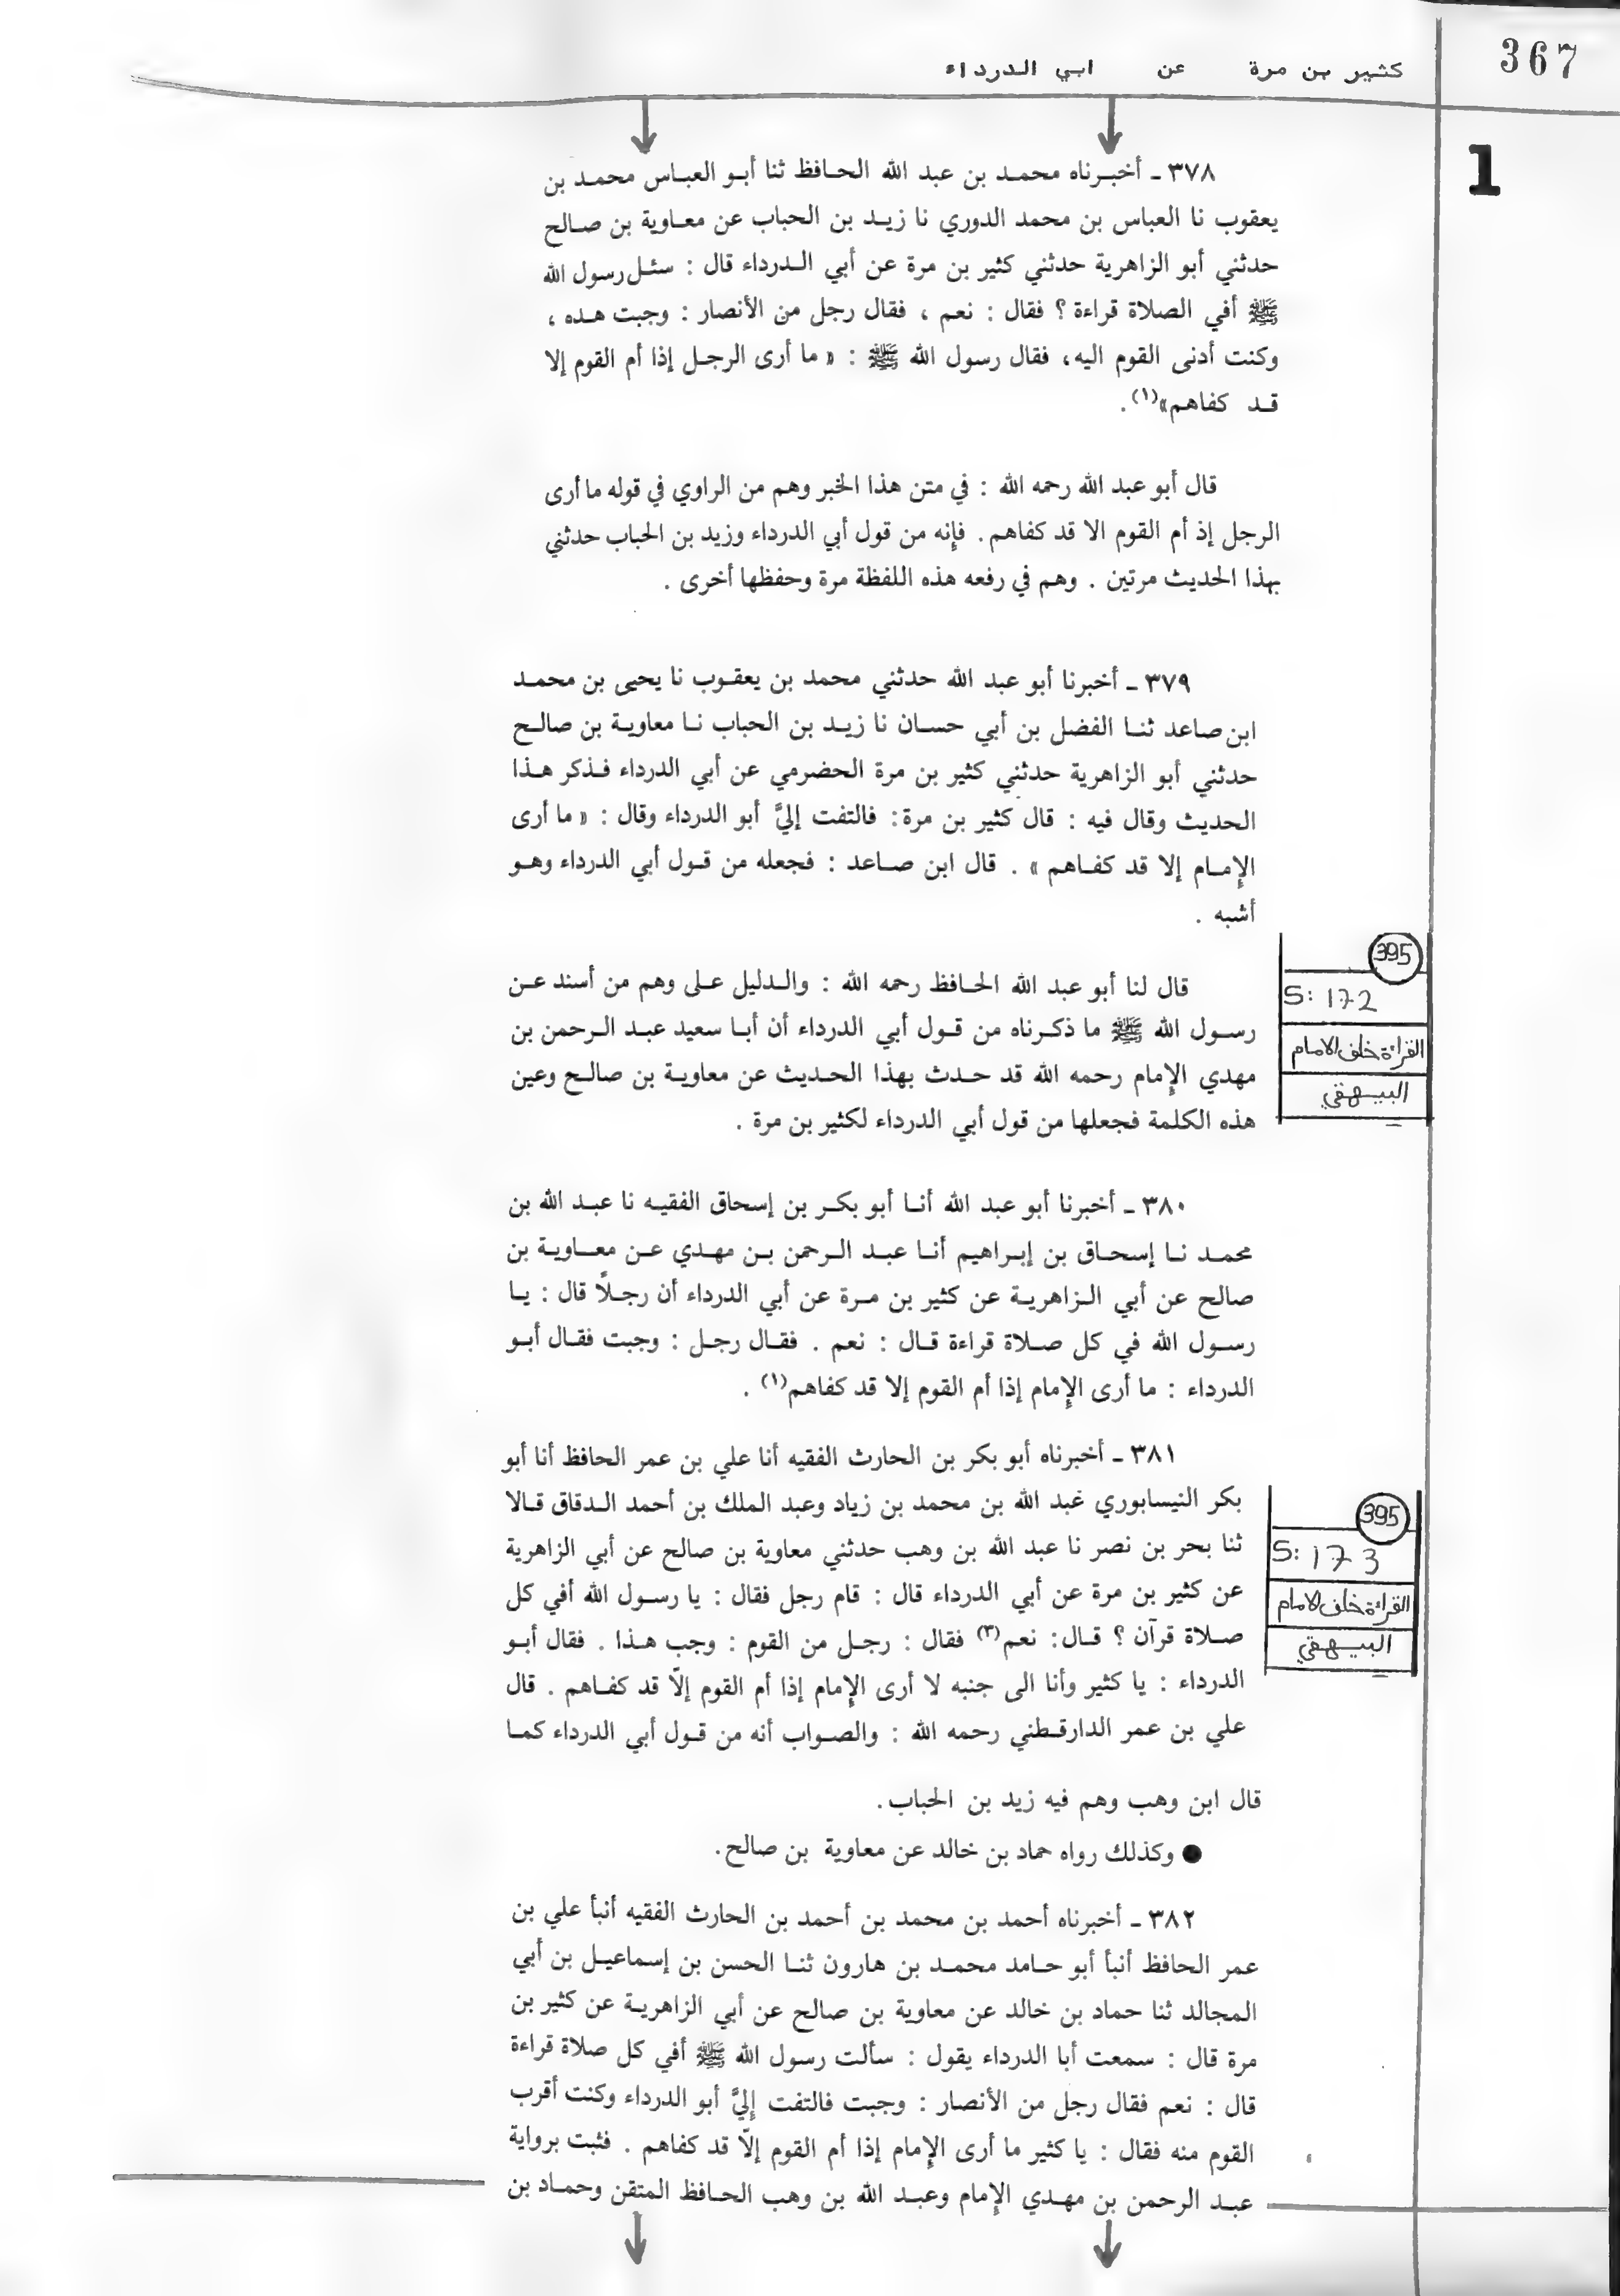 367
كثير بن مرة عن ابي الدرداء
1
٣٧٨ ـ أخبرناه محمد بن عبد الله الحافظ ثنا أبو العباس محمد بن
يعقوب نا العباس بن محمد الدوري نا زيد بن الحباب عن معاوية بن صالح
حدثني أبو الزاهرية حدثني كثير بن مرة عن أبي الدرداء قال : سئل رسول الله
ﷺ أفي الصلاة قراءة ؟ فقال : نعم ، فقال رجل من الأنصار : وجبت هذه ،
وكنت أدنى القوم اليه، فقال رسول الله ﷺ : « ما أرى الرجل إذا أم القوم إلا
قد كفاهم»(١) .
قال أبو عبد الله رحمه الله : في متن هذا الخبر وهم من الراوي في قوله ما أرى
الرجل إذ أم القوم الا قد كفاهم . فإنه من قول أبي الدرداء وزيد بن الحباب حدثني
بهذا الحديث مرتين . وهم في رفعه هذه اللفظة مرة وحفظها أخرى .
٣٧٩ ـ أخبرنا أبو عبد الله حدثني محمد بن يعقوب نا يحيى بن محمد
ابن صاعد ثنا الفضل بن أبي حسان نا زيد بن الحباب نا معاوية بن صالح
حدثني أبو الزاهرية حدثني كثير بن مرة الحضرمي عن أبي الدرداء فذكر هذا
الحديث وقال فيه : قال كثير بن مرة: فالتفت إليَّ أبو الدرداء وقال : « ما أرى
الإمام إلا قد كفاهم » . قال ابن صاعد : فجعله من قول أبي الدرداء وهو
أشبه .
395
S: 172
القراءة خلف الامام
البيهقي
قال لنا أبو عبد الله الحافظ رحمه الله : والدليل على وهم من أسند عن
رسول الله ﷺ ما ذكرناه من قول أبي الدرداء أن أبا سعيد عبد الرحمن بن
مهدي الإمام رحمه الله قد حدث بهذا الحديث عن معاوية بن صالح وعين
هذه الكلمة فجعلها من قول أبي الدرداء لكثير بن مرة .
٣٨٠ ـ أخبرنا أبو عبد الله أنا أبو بكر بن إسحاق الفقيه نا عبد الله بن
محمد نا إسحاق بن إبراهيم أنا عبد الرحمن بن مهدي عن معاوية بن
صالح عن أبي الزاهرية عن كثير بن مرة عن أبي الدرداء أن رجلاً قال : يا
رسول الله في كل صلاة قراءة قال : نعم . فقال رجل : وجبت فقال أبو
الدرداء : ما أرى الإمام إذا أم القوم إلا قد كفاهم(١) .
٣٨١ ـ أخبرناه أبو بكر بن الحارث الفقيه أنا علي بن عمر الحافظ أنا أبو
بكر النيسابوري عبد الله بن محمد بن زياد وعبد الملك بن أحمد الدقاق قالا
ثنا بحر بن نصر نا عبد الله بن وهب حدثني معاوية بن صالح عن أبي الزاهرية
عن كثير بن مرة عن أبي الدرداء قال : قام رجل فقال : يا رسول الله أفي كل
صلاة قرآن ؟ قال: نعم(٣) فقال : رجل من القوم : وجب هذا . فقال أبو
الدرداء : يا كثير وأنا الى جنبه لا أرى الإمام إذا أم القوم إلّا قد كفاهم . قال
علي بن عمر الدارقطني رحمه الله : والصواب أنه من قول أبي الدرداء كما
395
S: 173
القراءة خلف الامام
البيهقي
قال ابن وهب وهم فيه زيد بن الحباب .
● وكذلك رواه حماد بن خالد عن معاوية بن صالح .
٣٨٢ ـ أخبرناه أحمد بن محمد بن أحمد بن الحارث الفقيه أنبأ علي بن
عمر الحافظ أنبأ أبو حامد محمد بن هارون ثنا الحسن بن إسماعيل بن أبي
المجالد ثنا حماد بن خالد عن معاوية بن صالح عن أبي الزاهرية عن كثير بن
مرة قال : سمعت أبا الدرداء يقول : سألت رسول الله ﷺ أفي كل صلاة قراءة
قال : نعم فقال رجل من الأنصار : وجبت فالتفت إليَّ أبو الدرداء وكنت أقرب
القوم منه فقال : يا كثير ما أرى الإمام إذا أم القوم إلّا قد كفاهم . فثبت برواية
عبد الرحمن بن مهدي الإمام وعبد الله بن وهب الحافظ المتقن وحماد بن